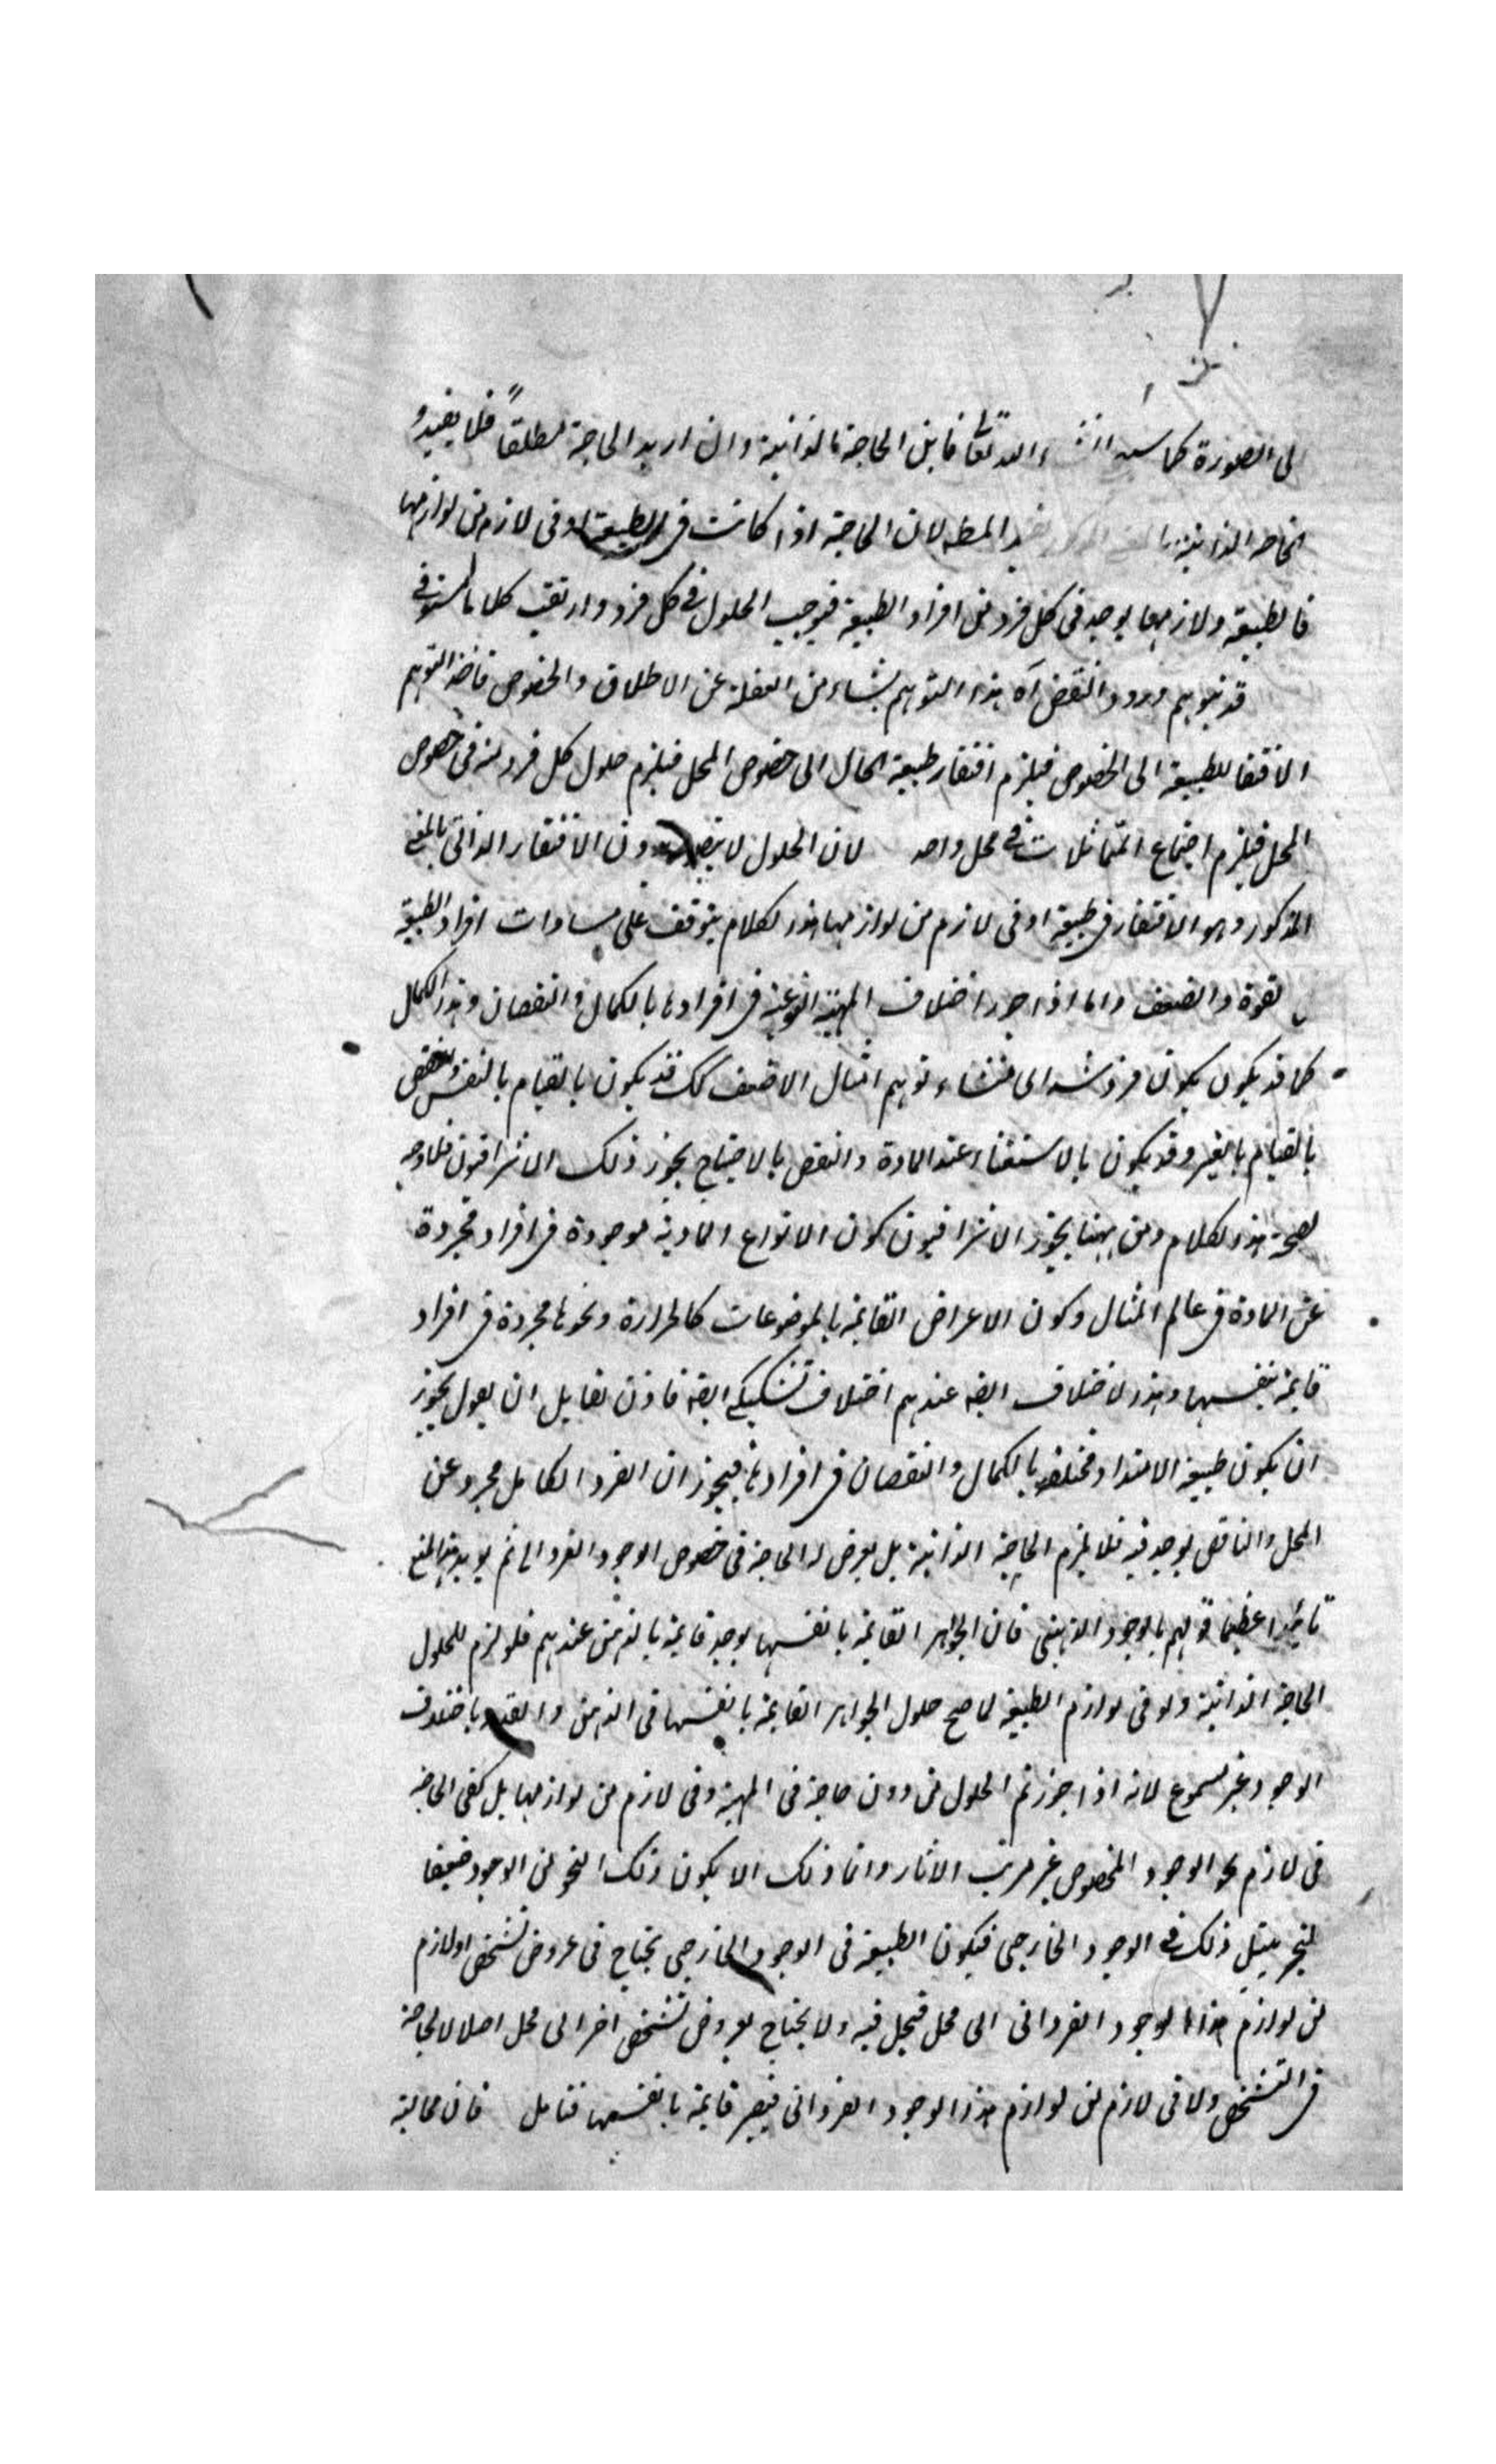 الى الصورة كما سيجى انشاء الله تعالى فاين الحاجة الذاتية وان اريد الحاجة مطلقاً فلا يفيد و
الحاجة الذاتية المط لان الحاجة اذا كانت فى الطبيعة او فى لازم من لوازمها
فالطبيعة ولازمها يوجد فى كل فرد من افراد الطبيعة فيوجب الحلول فى كل فرد وارتقب كلاما مستوفى
قد يتوهم ورود النقض آه هذا التوهم ينشاء من الغفلة عن الاطلاق والخصوص فاخذ المتوهم
الافتقار للطبيعة الى الخصوص فيلزم افتقار طبيعة الحال الى خصوص المحل فيلزم حلول كل فرد منه فى خصوص
المحل فيلزم اجتماع المتماثلات فى محل واحد لان الحلول لا يتصور بدون الافتقار الذاتى بالمعنى
المذكور وهو الافتقار فى طبيعة او فى لازم من لوازمها هذا الكلام يتوقف على مساوات افراد الطبيعة
لقوة والضعف واما اذا جوز اختلاف المهية النوعية فى افرادها بالكمال والنقصان وهذا الكمال
كما قد يكون بكون فرد منشاء توهم امثال الاضعف كك قد يكون بالقيام بالنفس والنقص
بالقيام بالغير وقد يكون بالاستغناء عند المادة والنقص بالاحتياج يجوز ذلك الاشراقيون فلا وجه
لصحة هذا الكلام ومن ههنا يجوز الاشراقيون كون الانواع المادية موجودة فى افراد مجردة
عن المادة فى عالم المثال وكون الاعراض القايمة بالموضوعات كالحرارة ونحوها مجردة فى افراد
قايمة بنفسها وهذا الاختلاف ايضه عندهم اختلاف تشكيكى ايضه فاذن لقايل ان يقول يجوز
ان يكون طبيعة الامتداد مختلفة بالكمال والنقصان فى افرادها فيجوز ان الفرد الكامل مجرد عن
المحل والناقص يوجد فيه فلا يلزم الحاجة الذاتية بل يعرض له الحاجة فى خصوص الوجود الفردانى ثم يويد هذا المنع
تائيدا عظيما قولهم بالوجود الذهنى فان الجواهر القايمة بانفسها يوجد قايمة بالذهن عندهم فلو لزم للحلول
الحاجة الذاتية ولو فى لوازم الطبيعة لما صح حلول الجواهر القايمة بانفسها فى الذهن والقول باختلاف
الوجود غير مسموع لانه اذا جوزتم الحلول من دون حاجة فى المهية وفى لازم من لوازمها بل كفى الحاجة
فى لازم نحو الوجود المخصوص غير مرتب الاثار وانما ذلك الا يكون ذلك النحو من الوجود ضعيفا
فيجر بمثل ذلك فى الوجود الخارجى فيكون الطبيعة فى الوجود الخارجى يحتاج فى عروض تشخص او لازم
من لوازم هذا الوجود الفردانى الى محل فيحل فيه ولا يحتاج بعروض تشخص اخر الى محل اصلا لا لحاجة
فى التشخص ولا فى لازم من لوازم هذا الوجود الفردانى فيصير قايمة بانفسها فتامل فان محالية